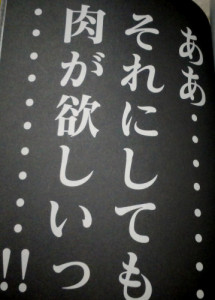 ああ‥‥‥‥
それにしても
肉が欲しいっ
‥‥‥‥‥‥!!